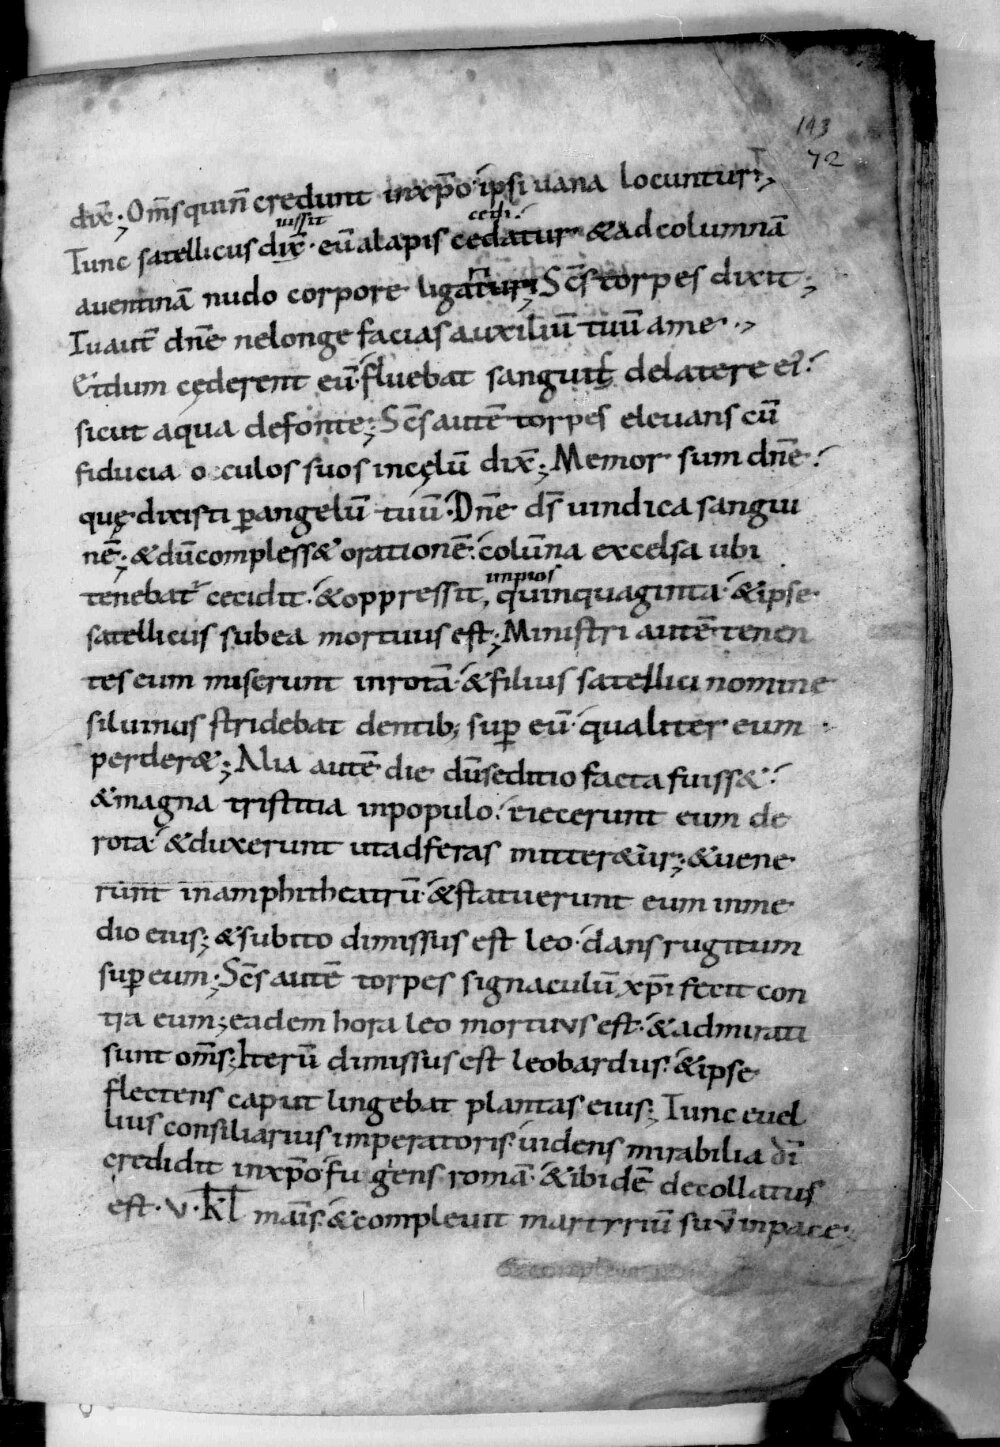 143
72
dix̄; Om̄s qui n̄ credunt in xp̄o ipsi uana locuntur;
iussit cedi
Tunc satellicus dix̄ · eū alapis cedatur & ad columnā
auentinā nudo corpore ligatur; Sc̄s torpes dixit;
Tu aut̄ dn̄e ne longe facias auxiliū tuū a me ·
Et dum cęderent eū · fluebat sanguis de latere ei᾿
sicut aqua de fonte; Sc̄s autē torpes eleuans cū
fiducia oculos suos in cęlū dix̄; Memor sum dn̄e
quę dixisti ꝑ angelū tuū · Dn̄e ds̄ uindica sangui
nē; & dū compless& orationē colūna excelsa ubi
impios
tenebat᾿ cecidit · & oppressit, quinquaginta · & ipse
satellicus sub ea mortuus est; Ministri autē tenen
tes eum miserunt in rotā · & filius satellici nomine
siluinus stridebat dentib; sup̄ eū · qualiter eum
perder&; Alia autē die dū seditio facta fuiss&
& magna tristitia in populo · eiecerunt eum de
rota & duxerunt ut ad feras mitter&ur; & uene
runt in amphitheatrū · & statuerunt eum in me
dio eius; & subito dimissus est leo · dans rugitum
sup̄ eum; Sc̄s autē torpes signaculū xp̄i fecit con
tra eum; eadem hora leo mortuus est · & admirati
sunt om̄s; Iterū dimissus est leobardus · & ipse
flectens caput lingebat plantas eius; Tunc euel
lius consiliarius imperatoris uidens mirabilia dī
credidit in xp̄o fugens romā · & ibidē decollatus
est · V · kl maīs · & compleuit martyriū suū in pace;